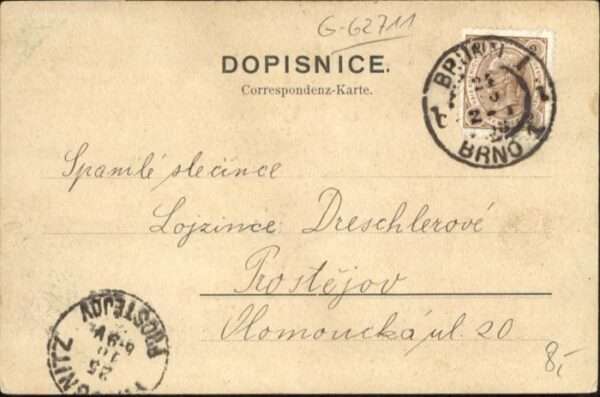 G-62711
DOPISNICE.
Correspondenz-Karte.
BRÜNN 1
BRNO 1
Spanilé slečince
Lojzince Dreschlerové
Prostějov
Olomoucká ul. 20
PROSTĚJOV
25
8,-